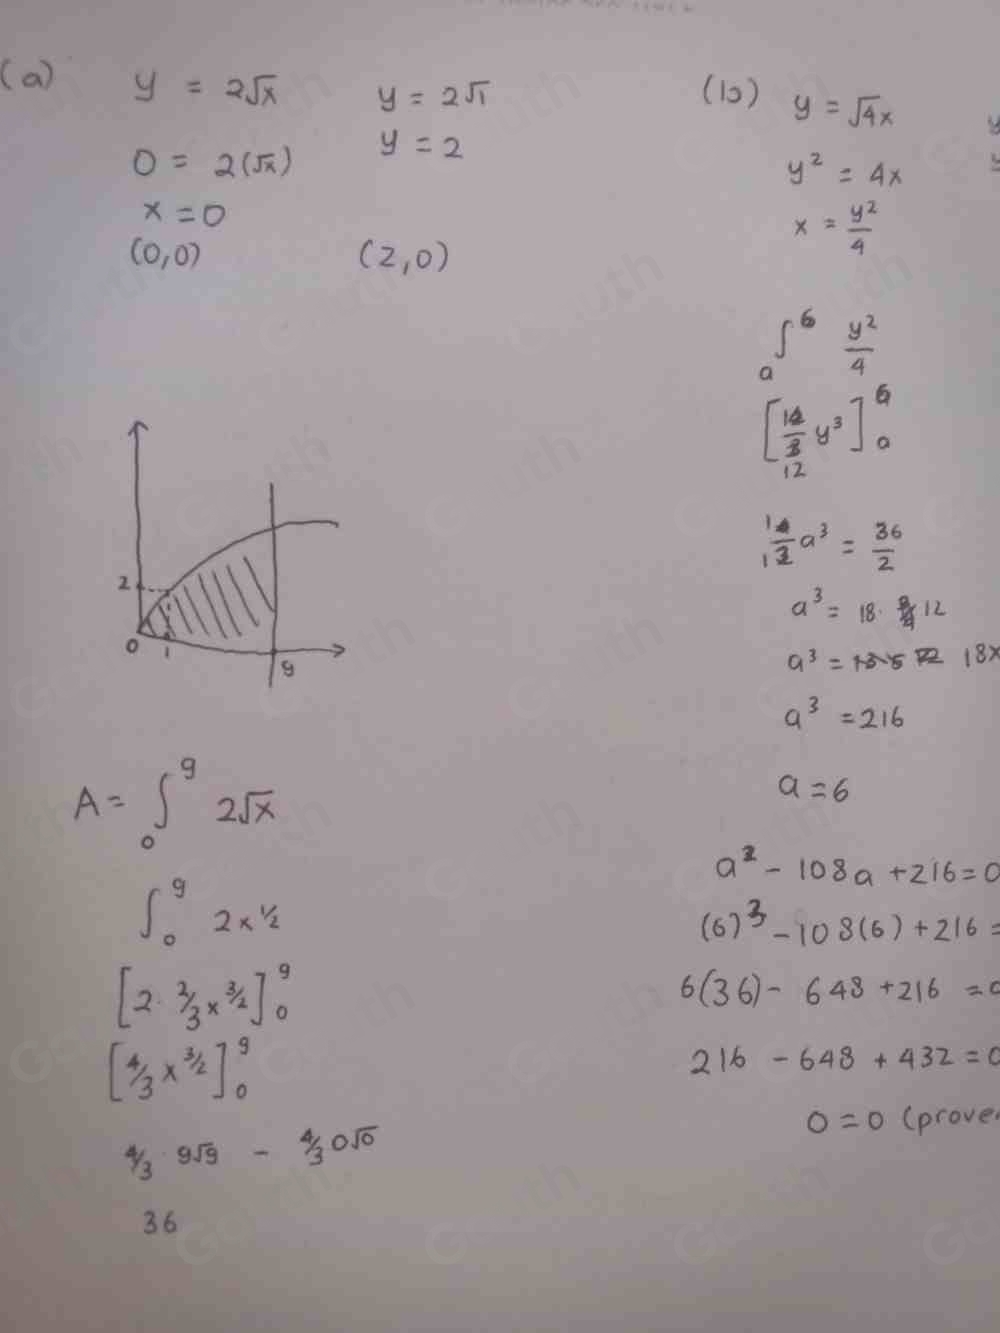 (a)
y = 2√x
0 = 2(√x)
x = 0
(0,0)
y = 2√1
y = 2
(2,0)
2
0
1
9
A = ∫₀⁹ 2√x
∫₀⁹ 2x^½
[2 · 2/3 x^3/2]₀⁹
[4/3 x^3/2]₀⁹
4/3 · 9√9 - 4/3 0√0
36
(b)
y = √4x
y² = 4x
x = y²/4
∫ₐ⁶ y²/4
[1/12 y³]ₐ⁶
1/12 a³ = 36/2
a³ = 18 · 12
a³ = 18x
a³ = 216
a = 6
a³ - 108a + 216 = 0
(6)³ - 108(6) + 216 =
6(36) - 648 + 216 = 0
216 - 648 + 432 = 0
0 = 0 (proven